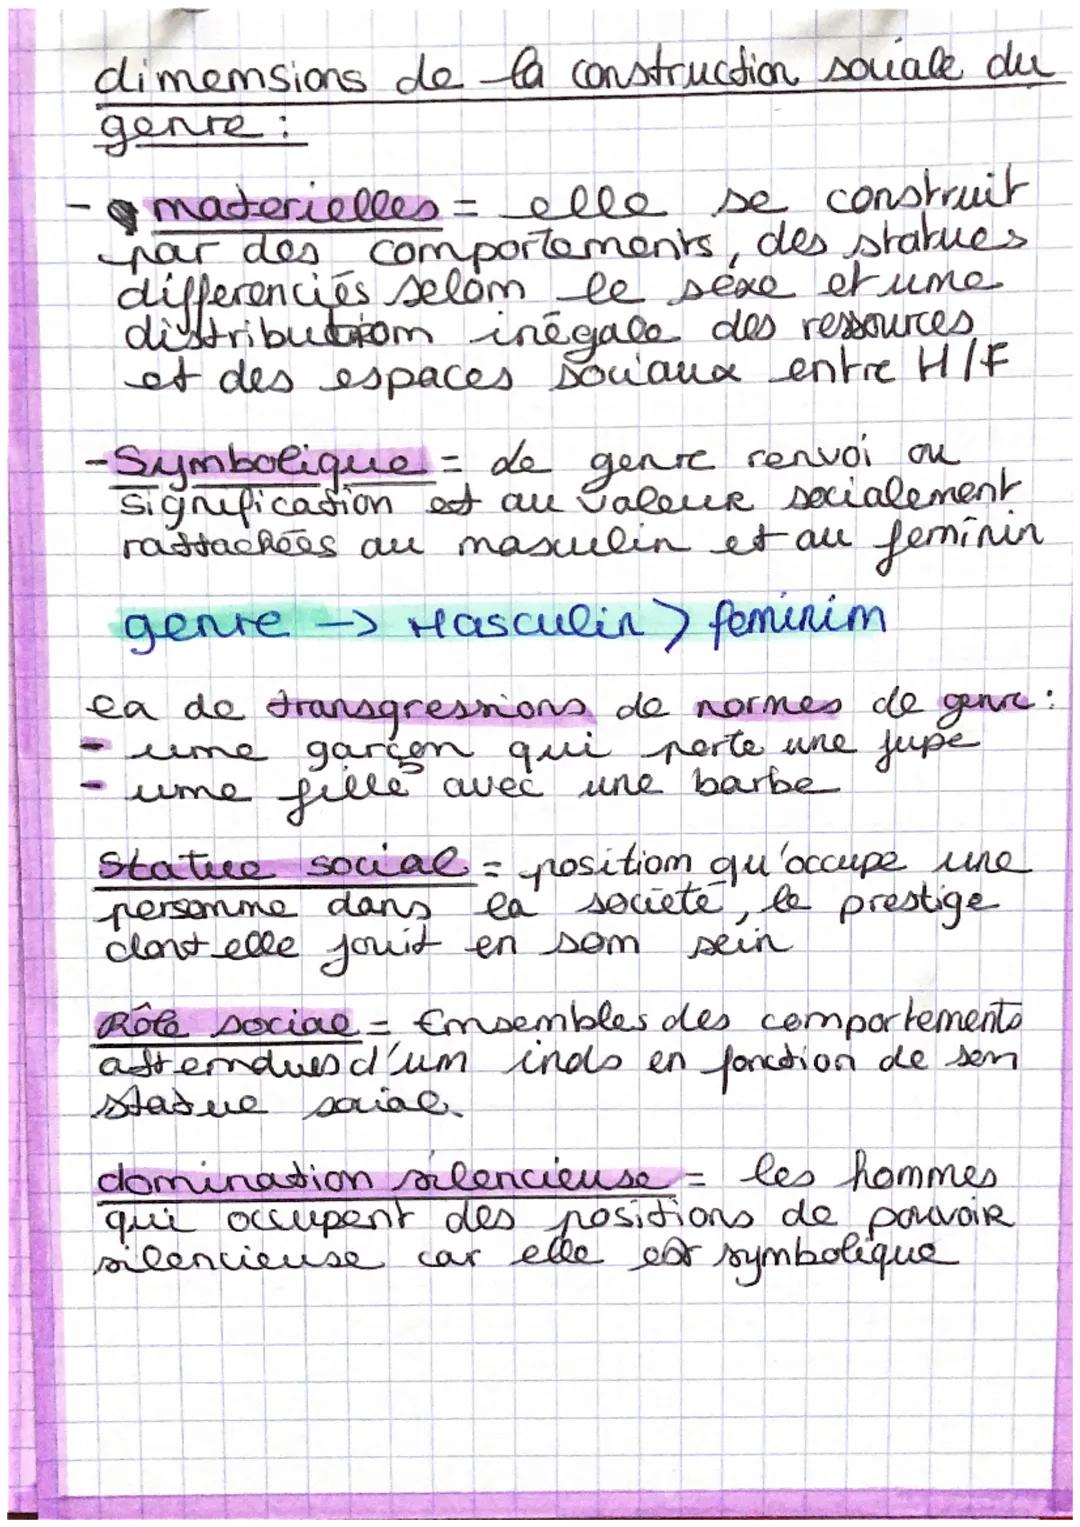 dimensions de la construction sociale du
genre :
- materielles = elle se construit
par des comportements, des statues
différenciés selon le sexe et une
distribution inégale des ressources
et des espaces sociaux entre H/F
- Symbolique = de genre renvoi au
signification et au valeur socialement
rattachées au masculin et au feminin
genre -> Masculin > feminin
ea de transgressions de normes de genre :
- une garçon qui porte une jupe
- une fille avec une barbe
Statue social = position qu'occupe une
personne dans la société, le prestige
dont elle jouit en son sein
Rôle social = Ensembles des comportements
attendues d'un inds en fonction de son
statue social.
domination silencieuse = les hommes
qui occupent des positions de pouvoir
silencieuse car elle est symbolique